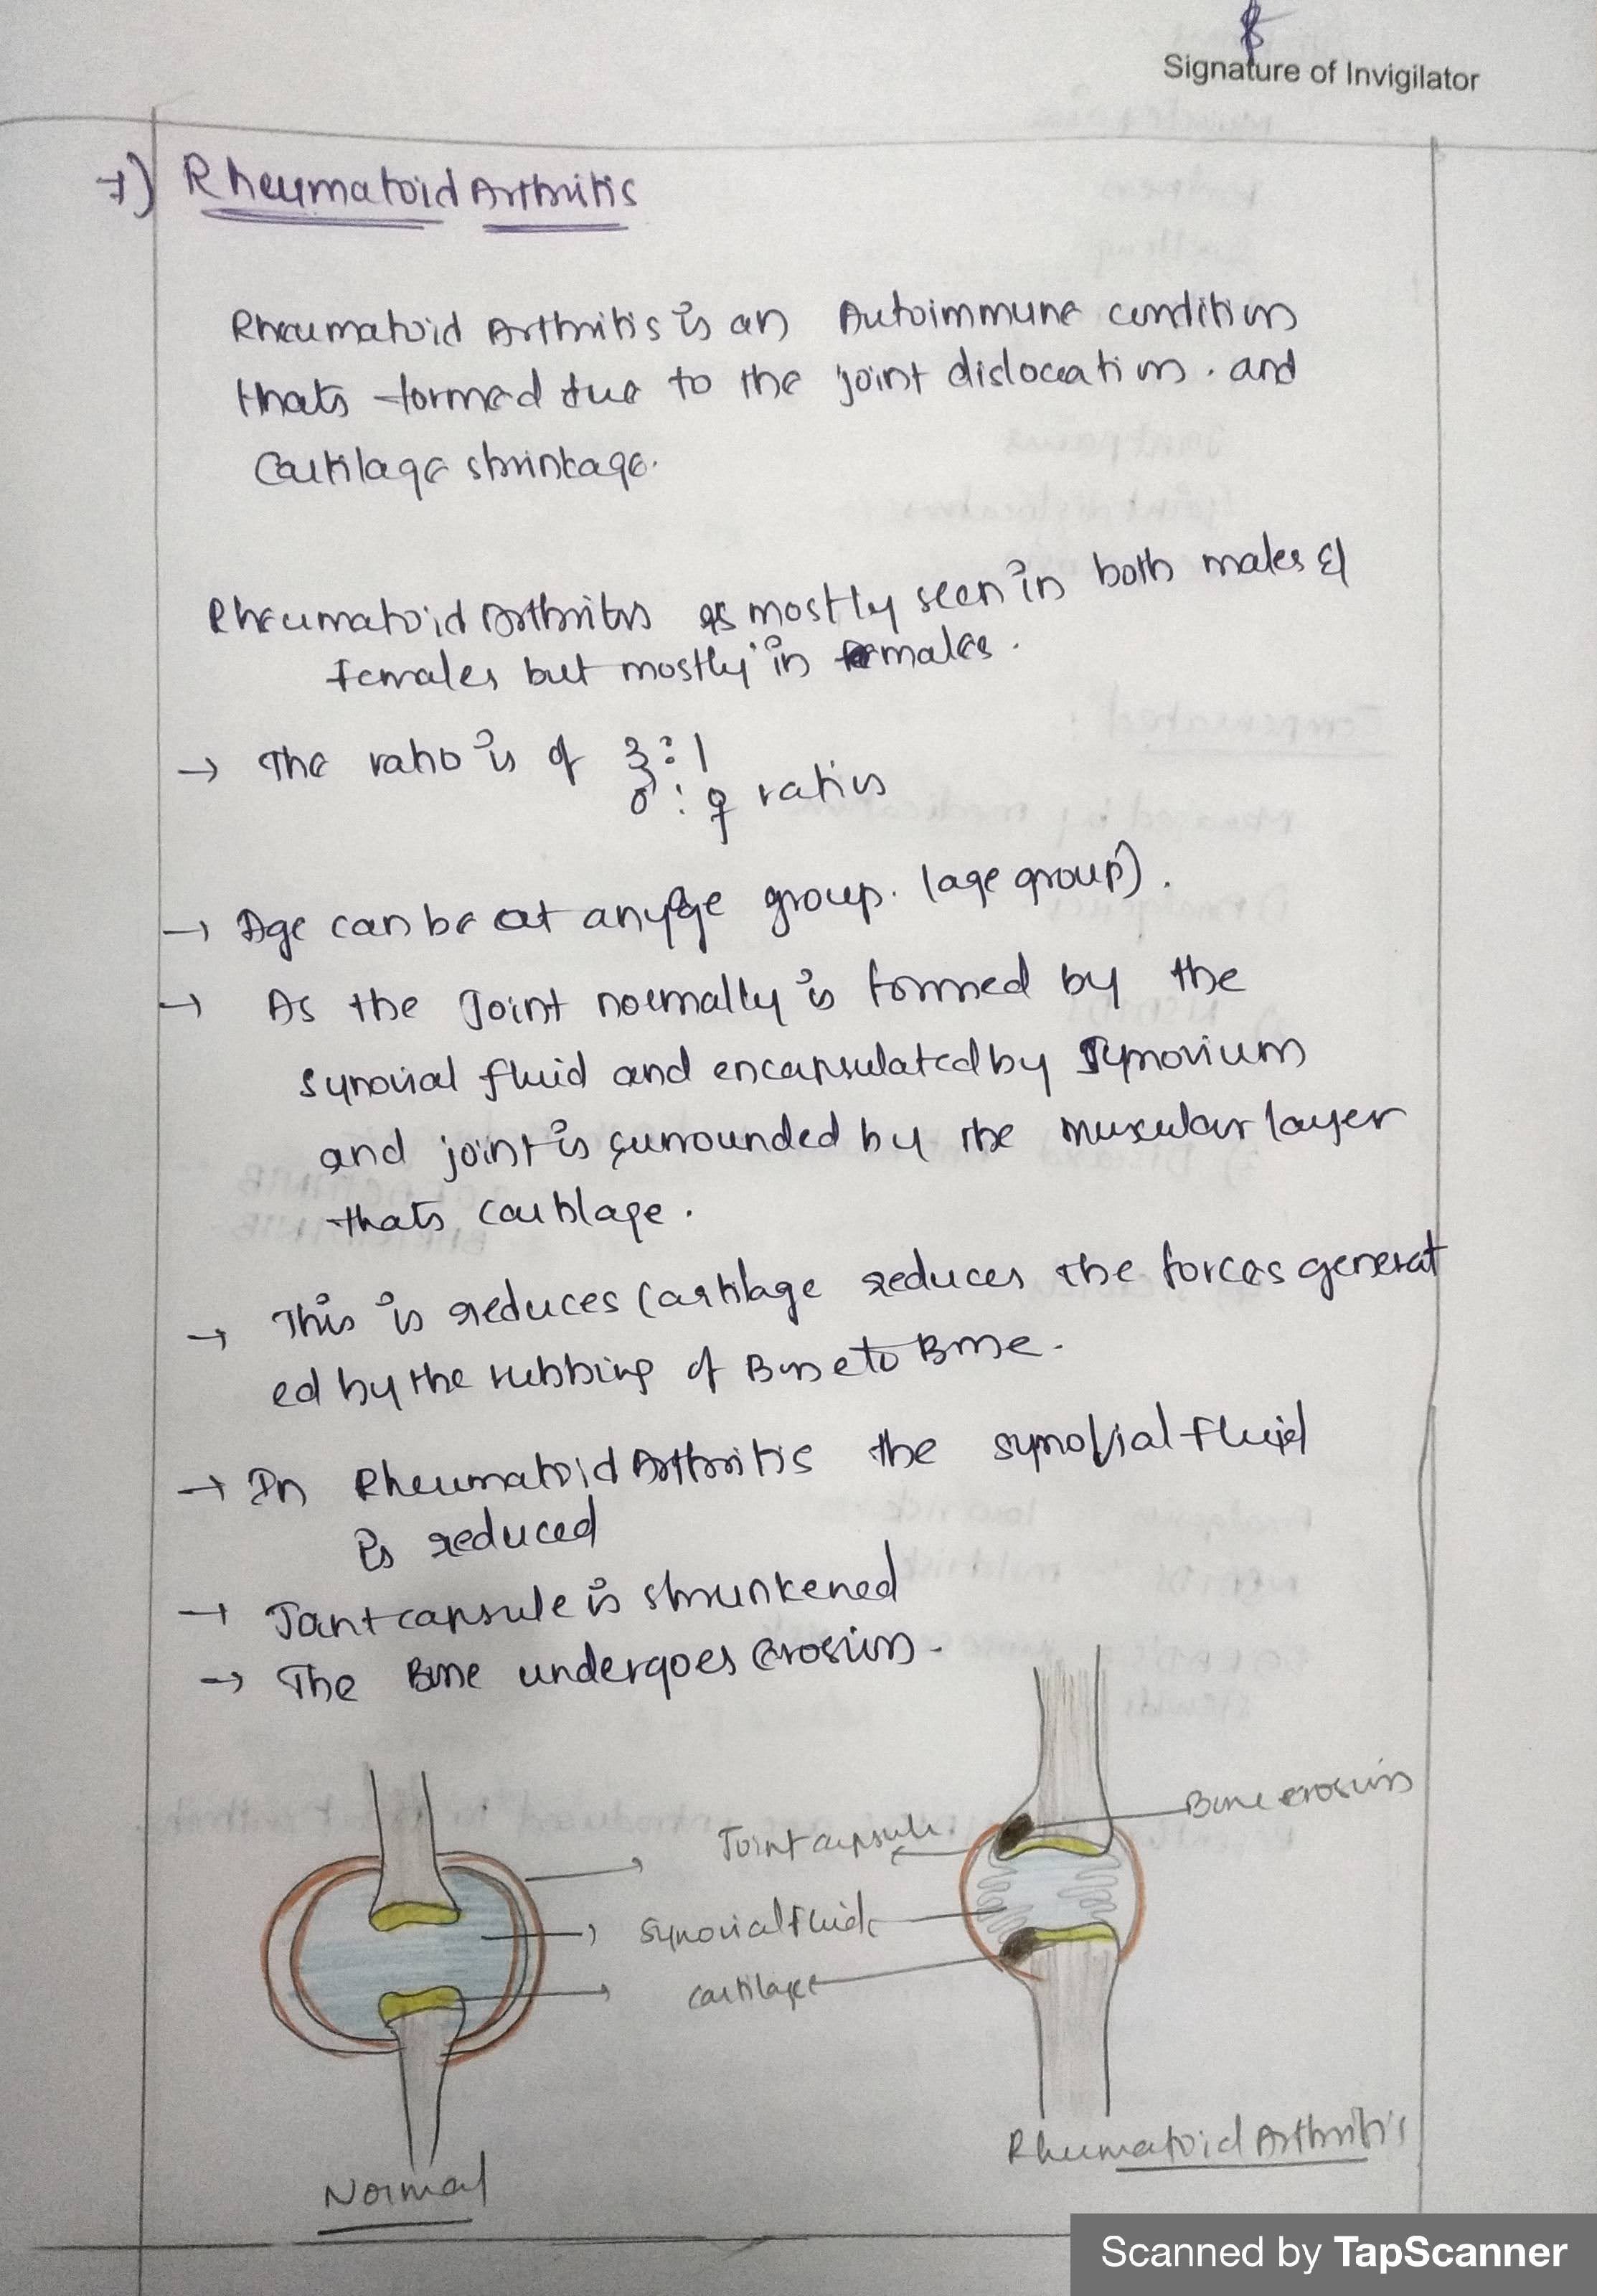 Signature of Invigilator
7) Rheumatoid Arthritis
Rheumatoid Arthritis is an Autoimmune condition
thats formed due to the joint dislocation. and
Cartilage shrinkage.
Rheumatoid Arthritis is mostly seen in both males &
females but mostly in males.
→ The ratio is of 3:1
♂ : ♀ ratio
→ Age can be at anyage group. (age group).
→ As the Joint normally is formed by the
synovial fluid and encapsulated by synovium
and joint is surrounded by the muscular layer
thats cartilage.
→ This is reduces cartilage reduces the forces generat
ed by the rubbing of Bone to Bone.
→ In Rheumatoid Arthritis the synovial fluid
is reduced
→ Joint capsule is shrunkened
→ The Bone undergoes erosion.
Bone erosion
Joint capsule.
synovial fluid
cartilage
Rheumatoid Arthritis
Normal
Scanned by TapScanner